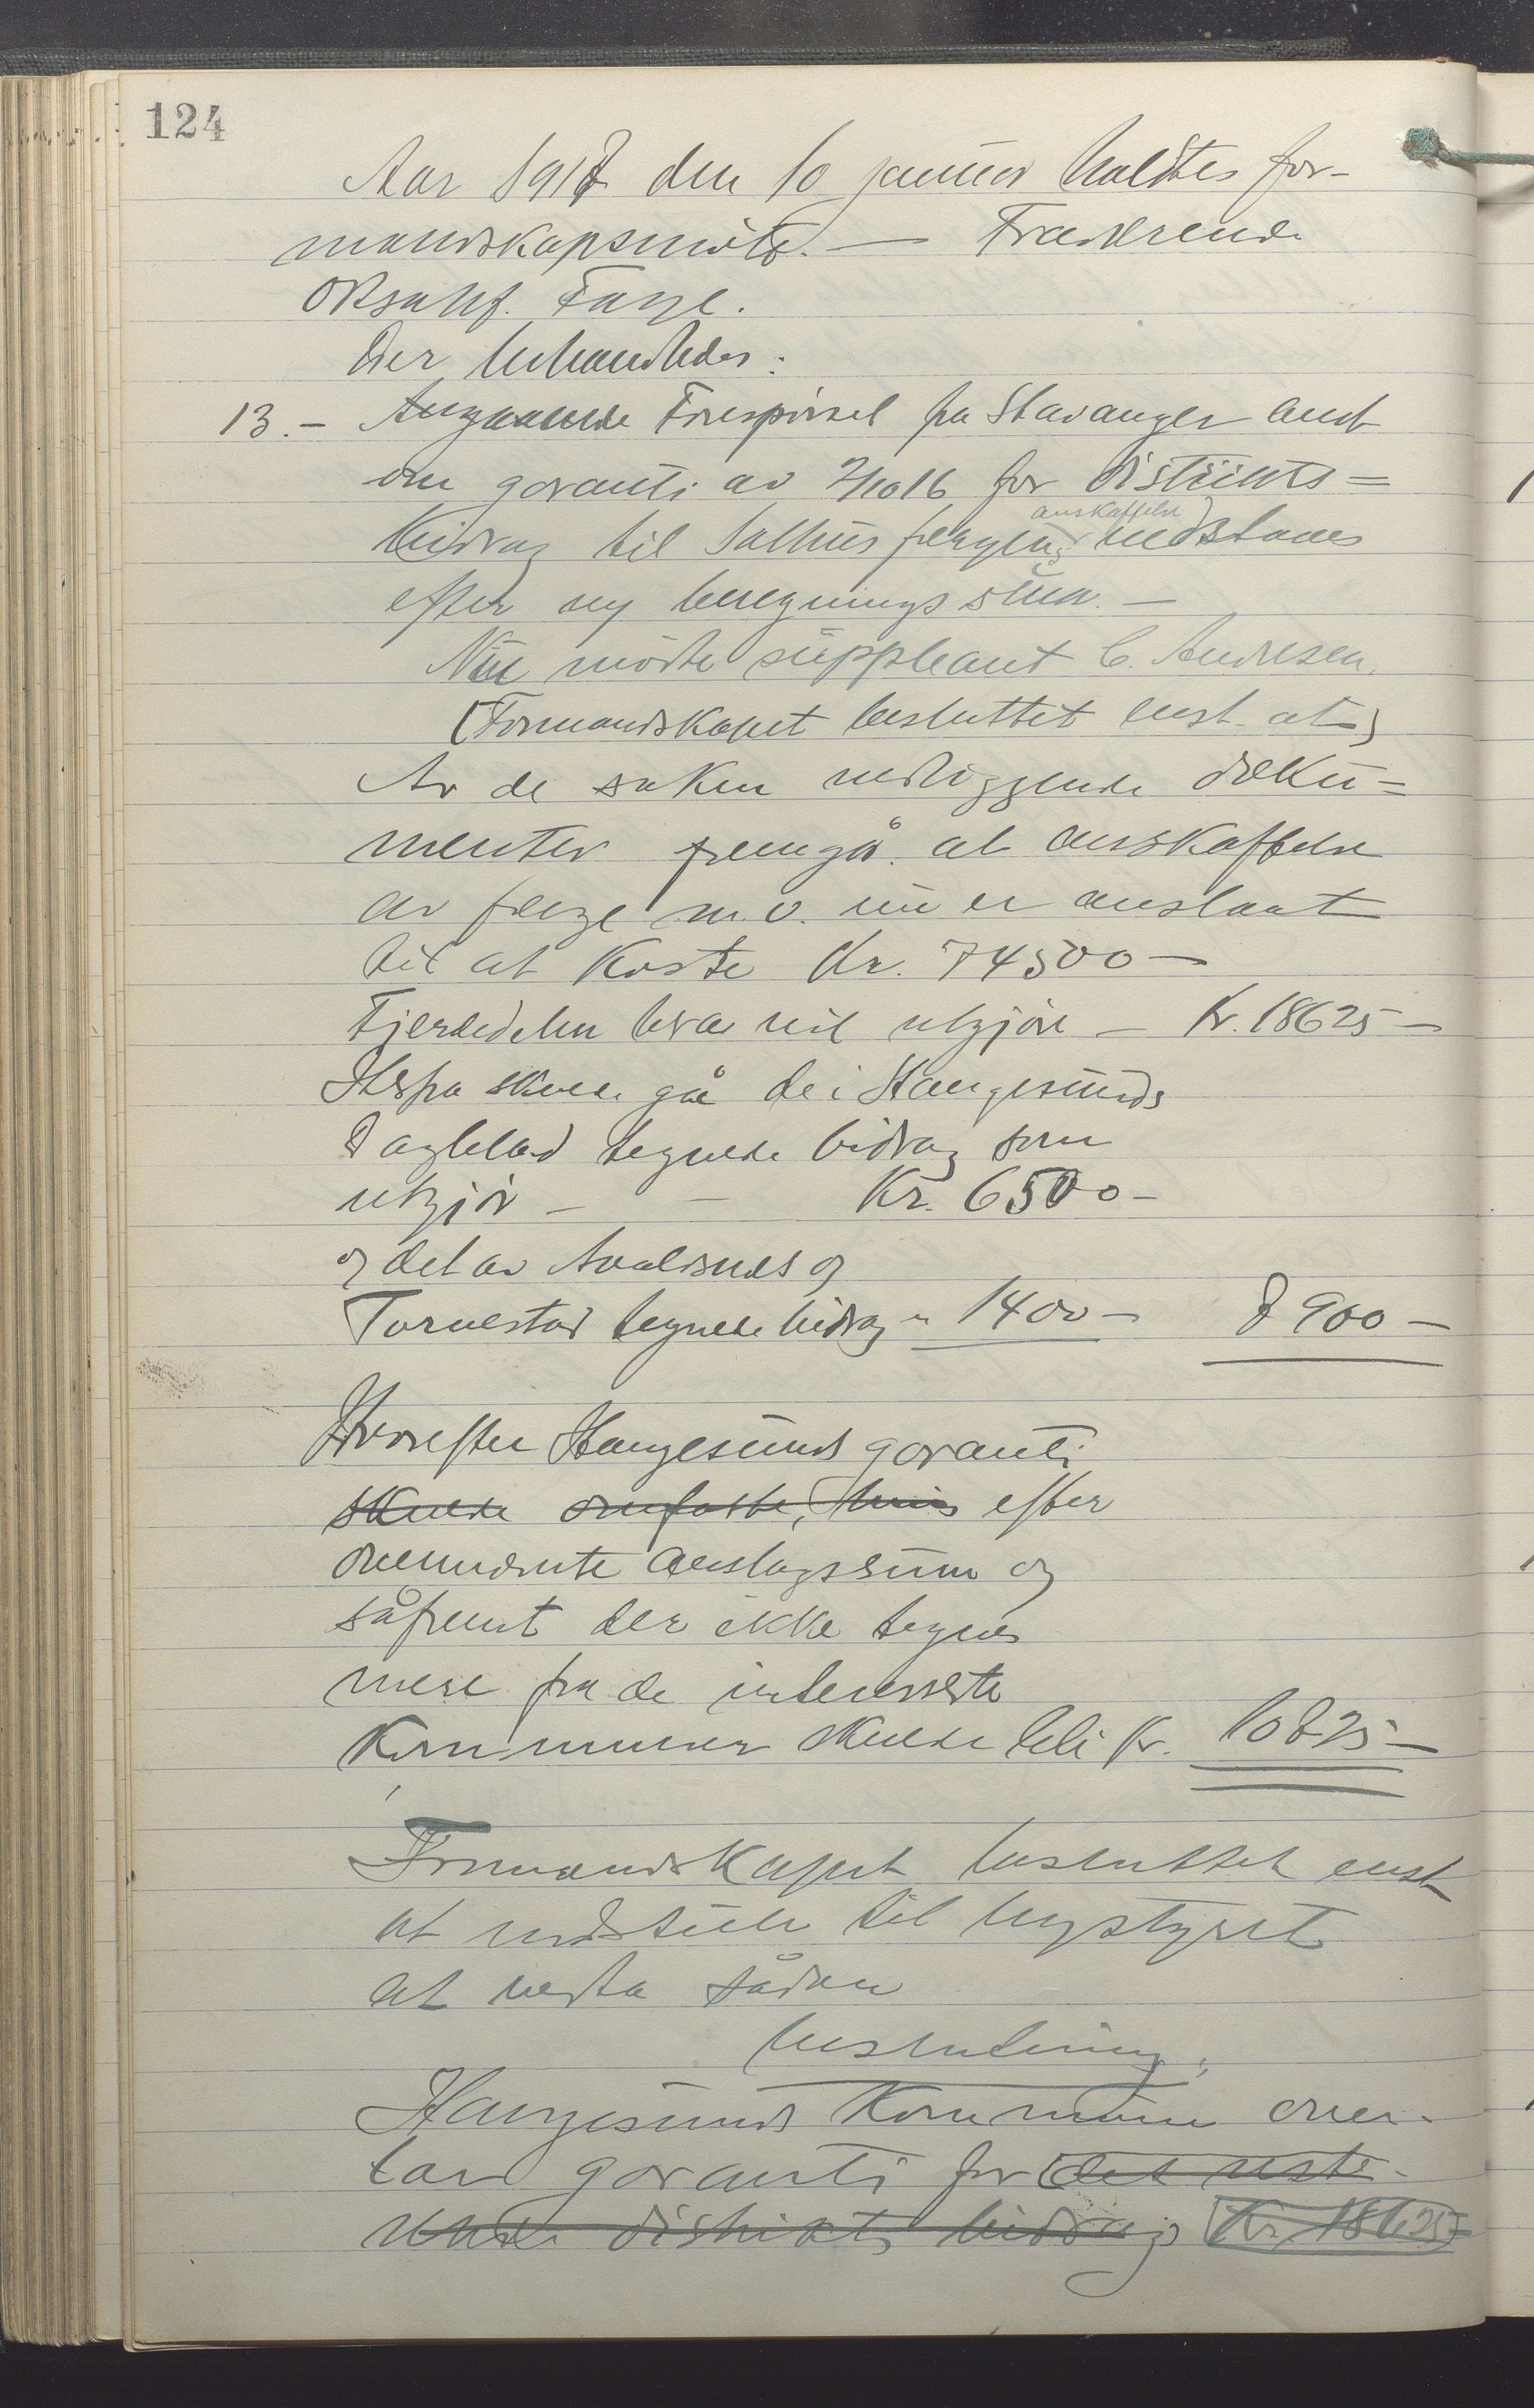 124
Aar 1917 den 10 januar holdtes for-
mandskapsmöte. — Fraværende
Oksahf. Fasze.
Der behandledes:
13. – Angaaende Forespörsel fra Stavanger amt
om garanti av 2/10 16 for distrikts=
bidrag til Salhus fergens anskaffelse
efter ny beregningssum. —
Nu mötte suppleant C. Andresen.
(Formandskapet besluttet enst. at)
Av de saken vedliggende doku=
menter fremgår at anskaffelse
av ferge m. v. nu er anslaat
til at koste Kr. 74500 —
Fjerdedelen herav vil utgjöre — Kr. 18625 —
Herfra skulde gå de i Haugesunds
Dagblad tegnede bidrag som
utgjör — — Kr. 6500 —
og det av Avaldsnes og
Torvestad tegnede bidrag " 1400 — 7900 —
Hvorefter Haugesunds garanti
skulde omfatte, hvis efter
ovennævnte anslagssum og
såfremt der ikke tegnes
mere fra de interesserte
kommuner skulde bli kr. 10725 —
Formandskapet besluttet enst
at indstille til bystyret
at vedta sådan
beslutning:
Haugesunds kommune over-
tar garanti for det reste-
rende distrikts bidrag Kr. 18625 –